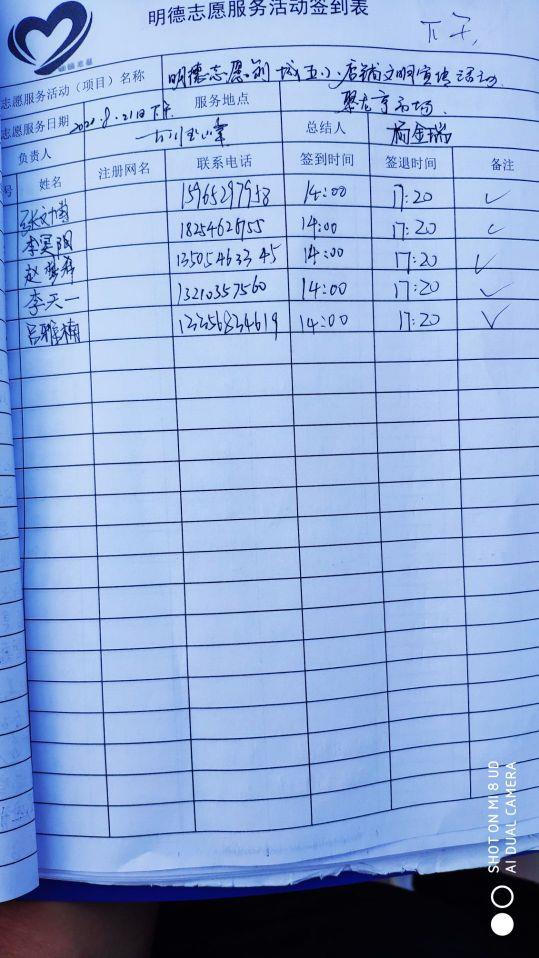 明德志愿服务活动签到表
下午
志愿服务活动（项目）名称 明德志愿 创城五小店铺文明宣传活动
志愿服务日期 2020.8.21日下午 服务地点 市场
负责人 总结人 杨金瑞
号 姓名 注册网名 联系电话 签到时间 签退时间 备注
15965297958 14:00 17:20 ✓
李冥阳 18254626755 14:00 17:20 ✓
赵梦希 13505463345 14:00 17:20 ✓
李天一 13210357560 14:00 17:20 ✓
吕雅楠 13356834619 14:00 17:20 ✓
SHOT ON MI 8 UD
AI DUAL CAMERA